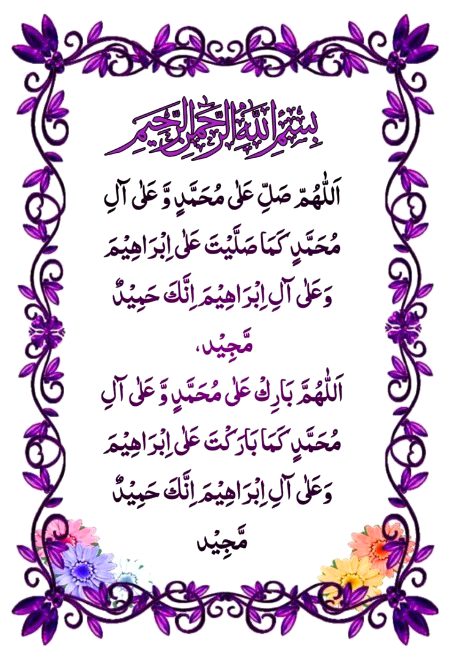 بِسْمِ اللهِ الرَّحْمٰنِ الرَّحِيْمِ
اَللّٰهُمَّ صَلِّ عَلٰى مُحَمَّدٍ وَّ عَلٰى آلِ
مُحَمَّدٍ كَمَا صَلَّيْتَ عَلٰى اِبْرَاهِيْمَ
وَعَلٰى آلِ اِبْرَاهِيْمَ اِنَّكَ حَمِيْدٌ
مَّجِيْد،
اَللّٰهُمَّ بَارِكْ عَلٰى مُحَمَّدٍ وَّ عَلٰى آلِ
مُحَمَّدٍ كَمَا بَارَكْتَ عَلٰى اِبْرَاهِيْمَ
وَعَلٰى آلِ اِبْرَاهِيْمَ اِنَّكَ حَمِيْدٌ
مَّجِيْد